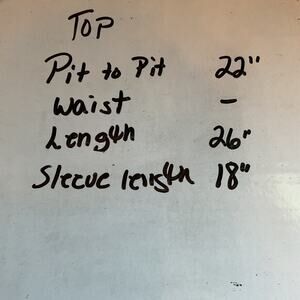 Top
Pit to Pit 22"
Waist -
Length 26"
Sleeve length 18"